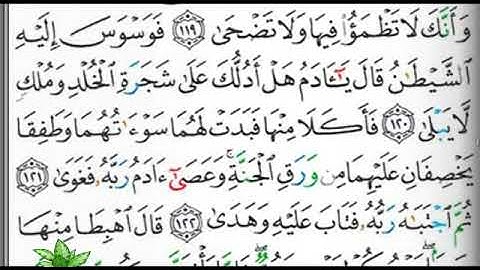 وَأَنَّكَ لَا تَظْمَؤُا۟ فِيهَا وَلَا تَضْحَىٰ ١١٩ فَوَسْوَسَ إِلَيْهِ
ٱلشَّيْطَٰنُ قَالَ يَٰٓـَٔادَمُ هَلْ أَدُلُّكَ عَلَىٰ شَجَرَةِ ٱلْخُلْدِ وَمُلْكٍ
لَّا يَبْلَىٰ ١٢٠ فَأَكَلَا مِنْهَا فَبَدَتْ لَهُمَا سَوْءَٰتُهُمَا وَطَفِقَا
يَخْصِفَانِ عَلَيْهِمَا مِن وَرَقِ ٱلْجَنَّةِ ۚ وَعَصَىٰٓ ءَادَمُ رَبَّهُۥ فَغَوَىٰ ١٢١
ثُمَّ ٱجْتَبَٰهُ رَبُّهُۥ فَتَابَ عَلَيْهِ وَهَدَىٰ ١٢٢ قَالَ ٱهْبِطَا مِنْهَا